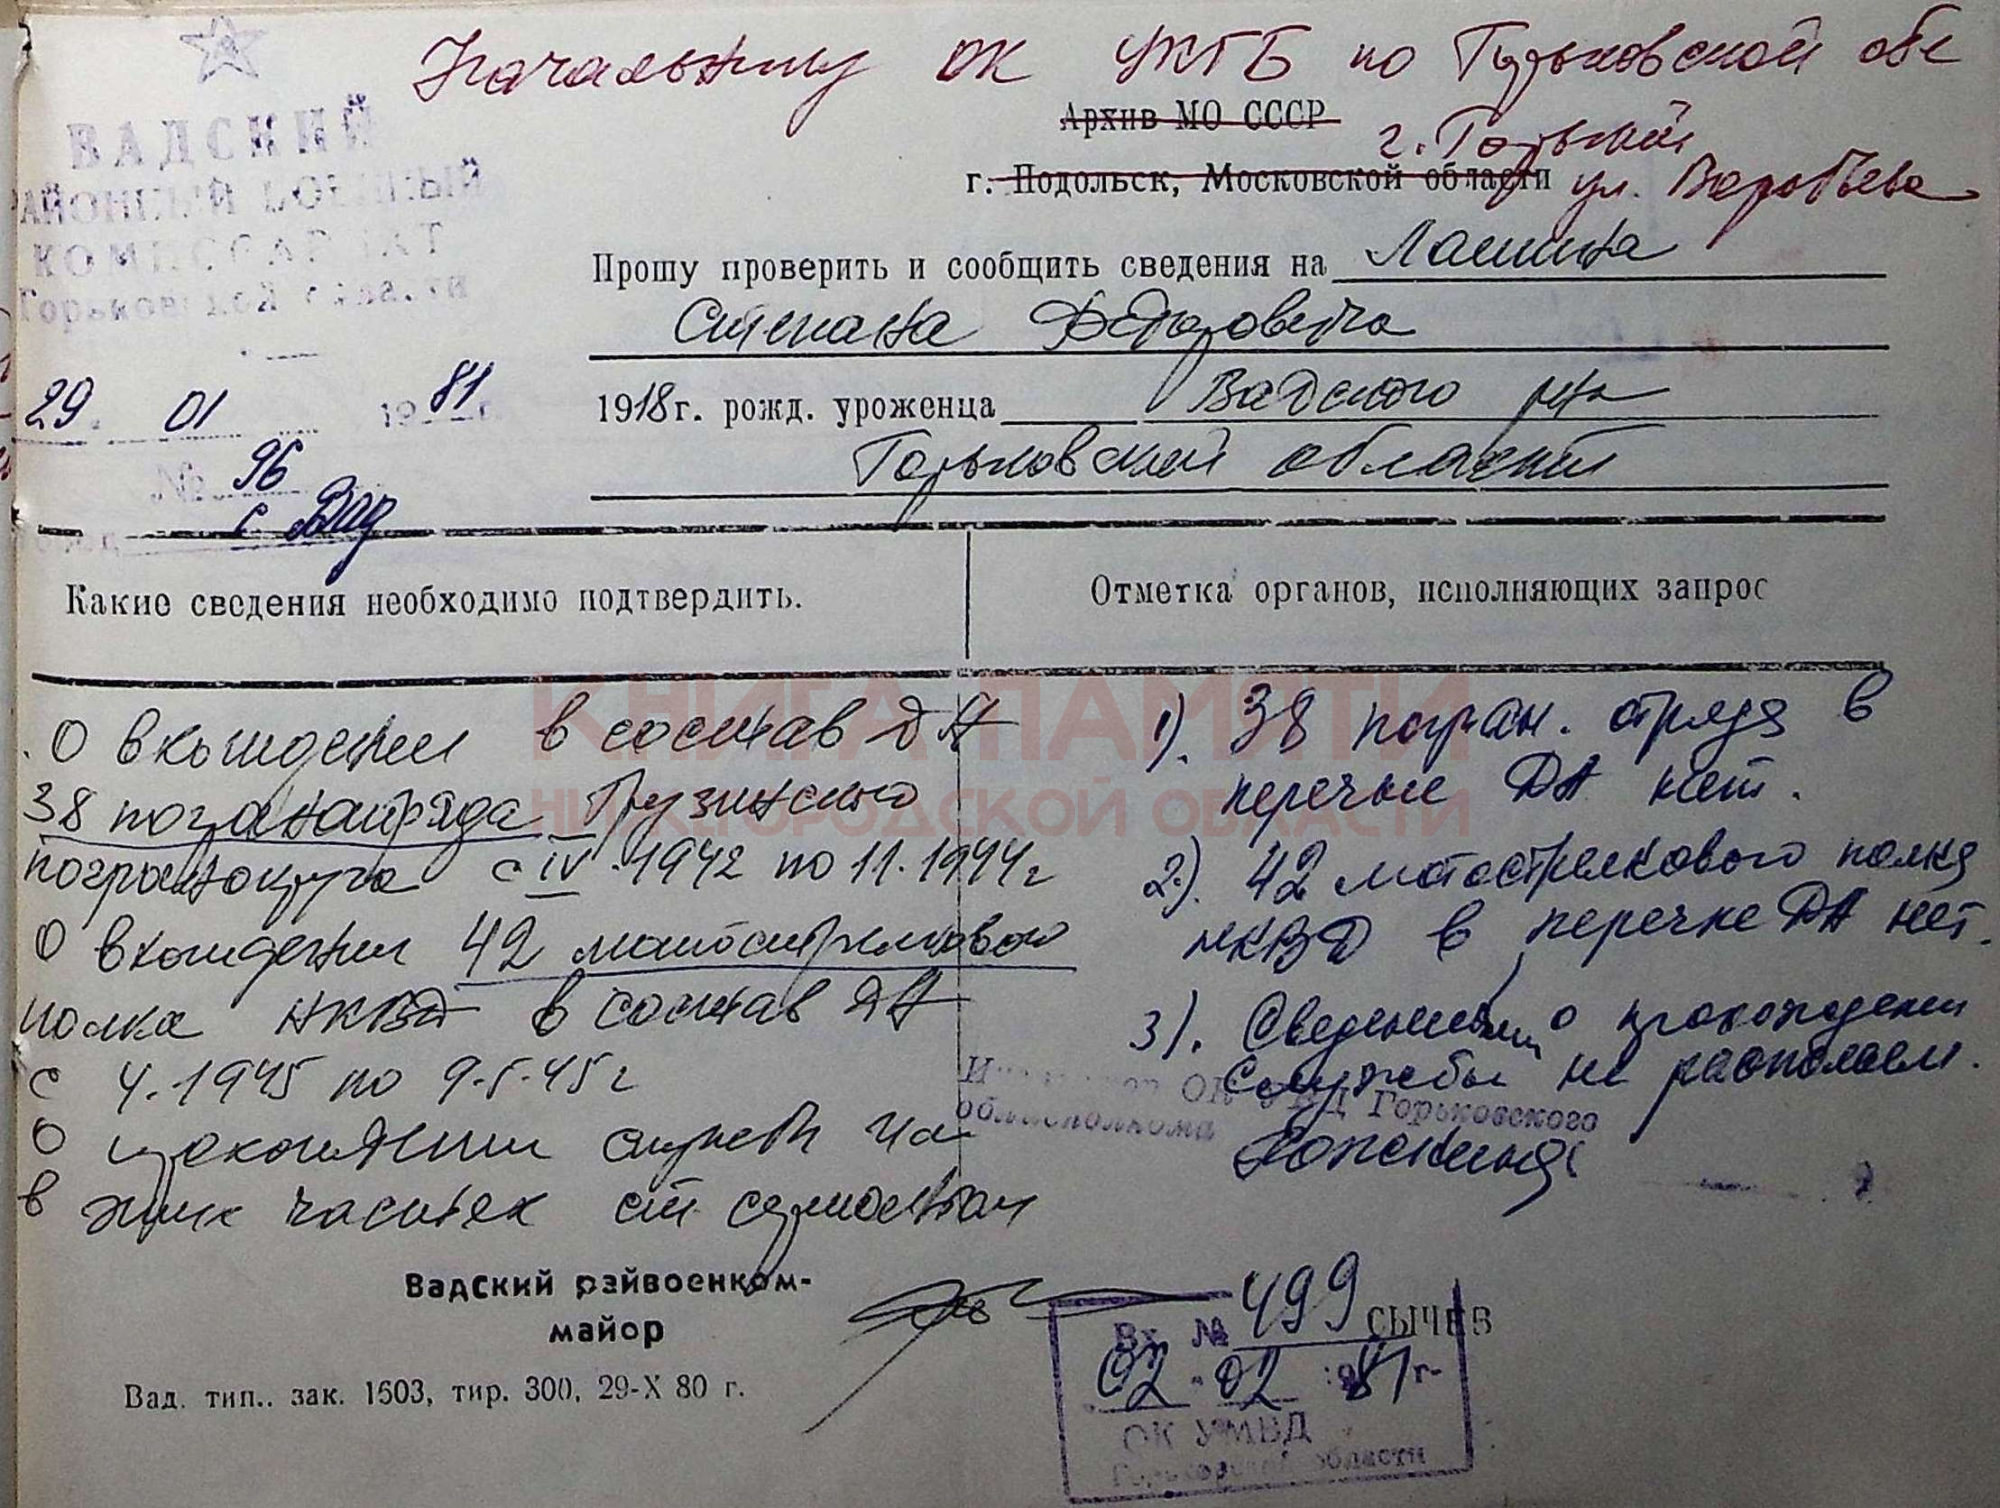 Начальнику ОК УКГБ по Горьковской обл
Архив МО СССР
г. Горький
г. Подольск, Московской области
ул. Воробьева
ВАДСКИЙ
РАЙОННЫЙ ВОЕННЫЙ
КОМИССАРИАТ
Горьковской области
29 01 1981 г.
№ 96
с Вад
Прошу проверить и сообщить сведения на Лашина
Степана Федоровича
1918 г. рожд. уроженца Вадского р-на
Горьковской области
Какие сведения необходимо подтвердить.
О вхождении в состав ДА
38 погранотряда Грузинского
погранокруга с IV.1942 по 11.1944г
О вхождении 42 мотострелкового
полка НКВД в состав ДА
с 4.1945 по 9.5.45г
О
в этих частях
Отметка органов, исполняющих запрос
1). 38 погран. отряда в
перечне ДА нет.
2). 42 мотострелкового полка
НКВД в перечне ДА нет.
3). Сведениями о прохождении
службы не располагаем.
ОК УВД Горьковского
облисполкома
Вадский райвоенком-
майор
СЫЧЕВ
Вх. № 499
02.02 1981 г.
ОК УМВД
Горьковской области
Вад. тип.. зак. 1603, тир. 300, 29-X 80 г.
КНИГА ПАМЯТИ
НИЖЕГОРОДСКОЙ ОБЛАСТИ